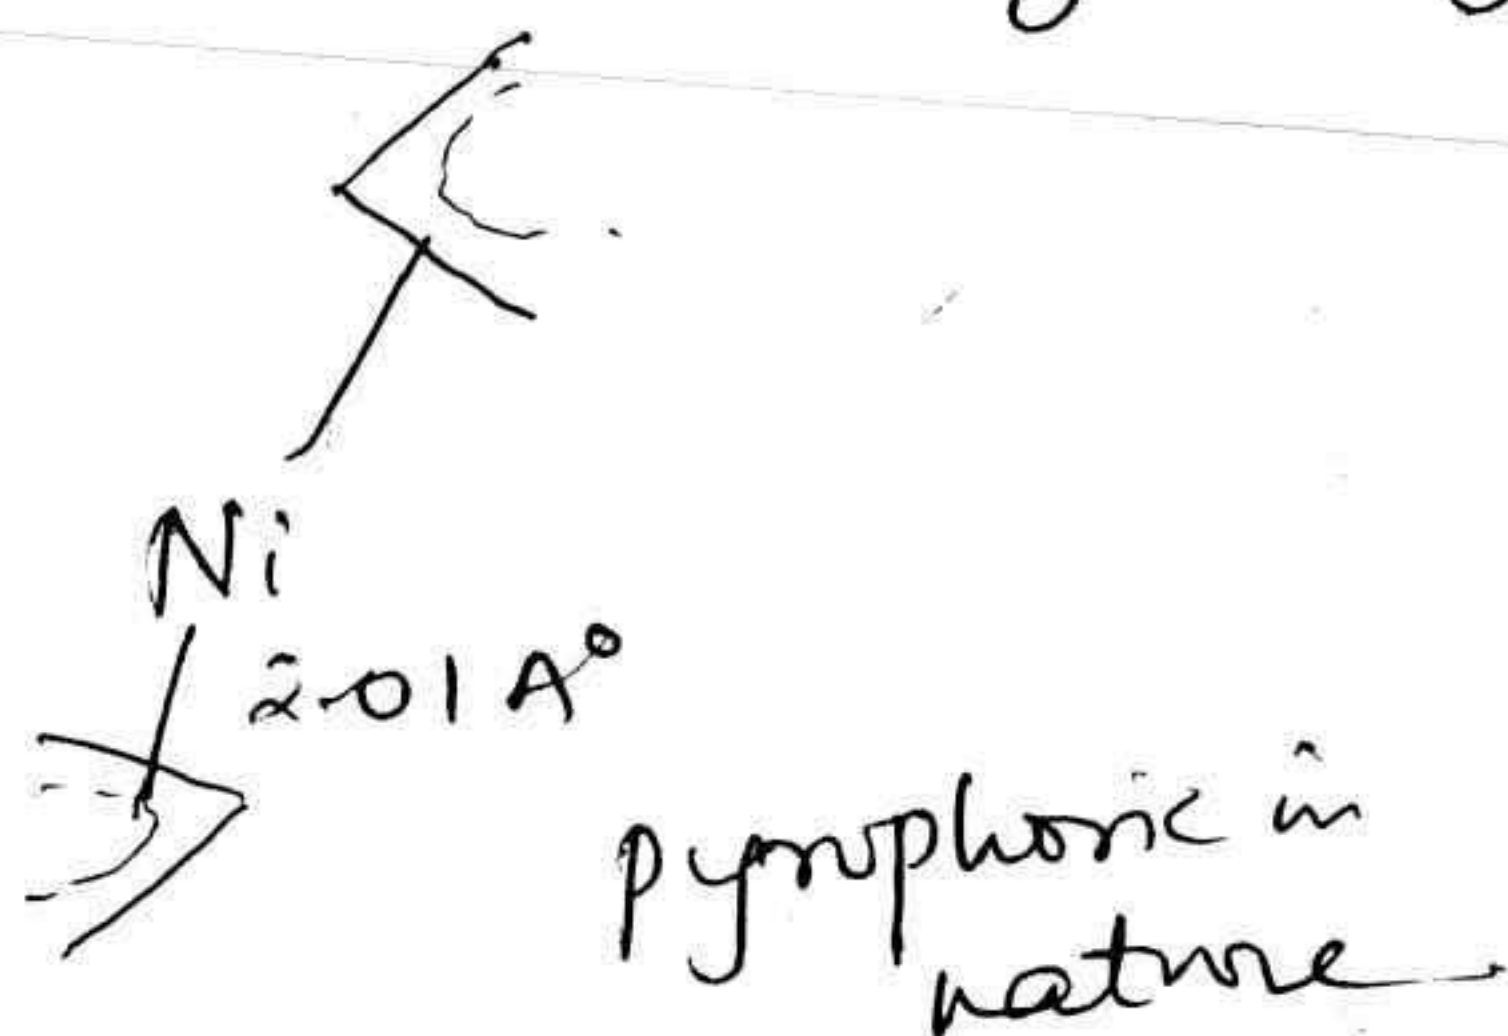 Ni
2.01 A°
pyrophoric in
nature